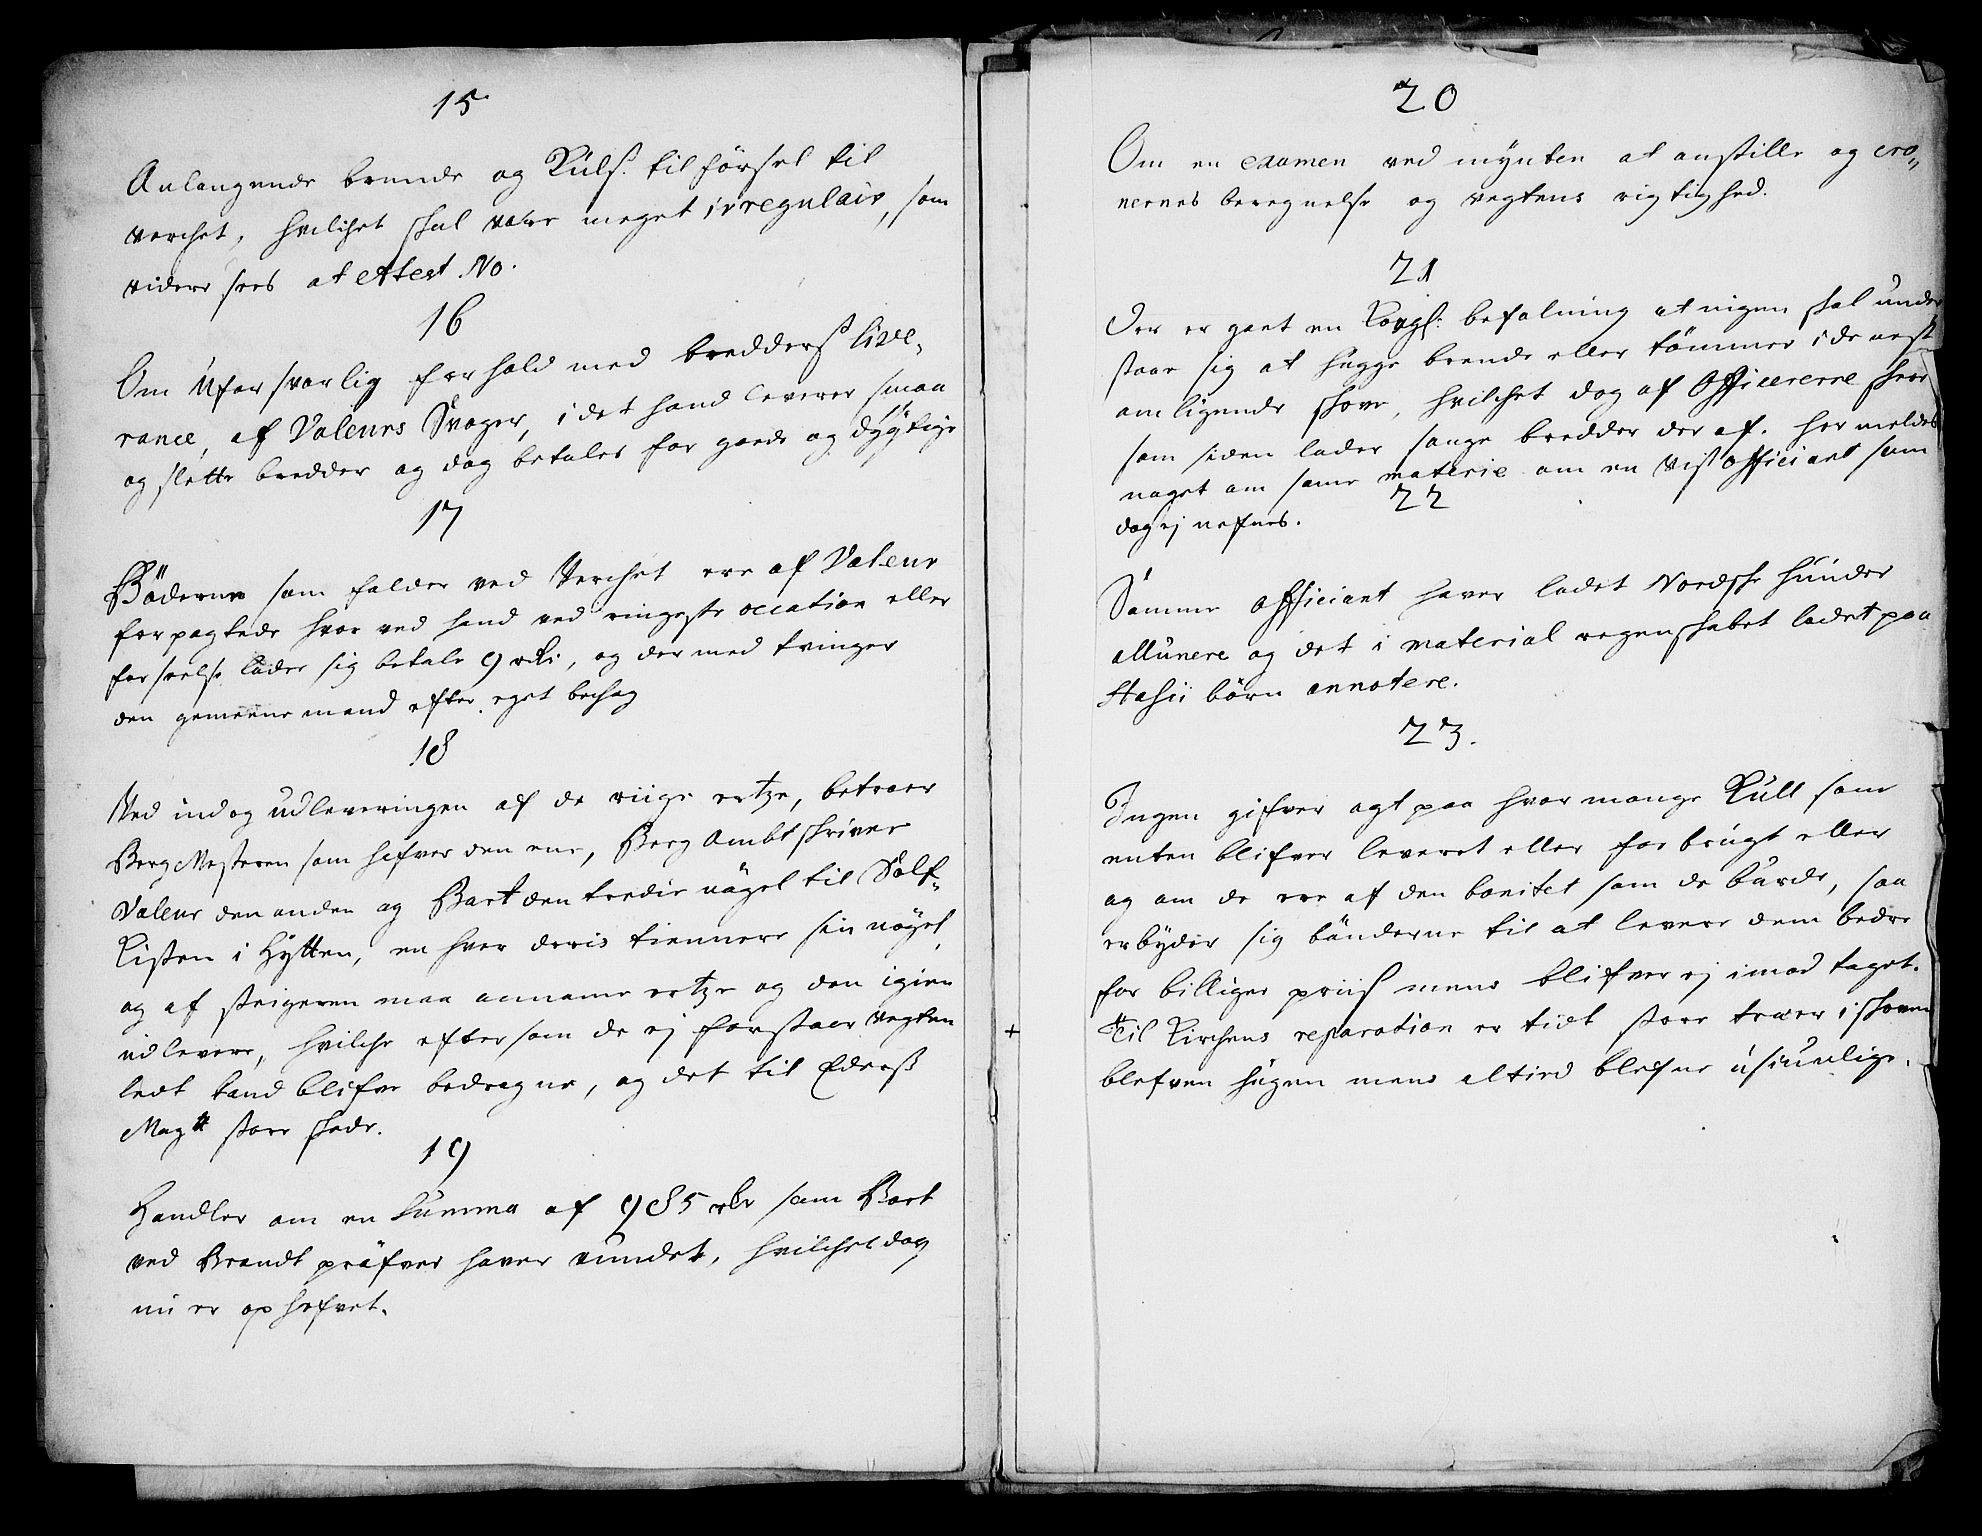 15
Anlangende brende og Kuls tilförsel til
verchet, hvilchet skal være meget irregulair, som
videre sees at Attest No.
16
Om Uforsvarlig forhold med bredders live-
rance, af Valeurs Svager, i det hand leverer smaa
og slette bredder og dog betales for goede og dygtige
17
Böderne som falder ved Verchet ere af Valeur
forpagtede hvor ved hand ved ringeste occation eller
forseelse lader sig betale 9 rdr, og der med tvinger
den gemeene mand efter eget behag
18
Ved ind og udleveringen af de riige ertze, betroer
BergMesteren som hafver den ene, Berg Ambtskriver
Valeur den anden og Bart den tredie nögel til Sölf-
Kisten i Hytten, en hver deris tiennere sin nögel,
og af steigeren maa anname ertze og den igien
udlevere, hvilche eftersom de ej forstaar Vegten
ledt kand blifve bedragne, og det til Ederß
Maytt store skade.
19
Handler om en Summa af 985 rdr som Bart
ved Brandt pröfver haver vundet, hvilchet dog
nu er ophefvet.
20
Om en examen ved mynten at anstille og cro-
nernes beregnelse og vegtens rigtighed.
21
Der er gaet en Kongl: befalning at ingen skal under
staae sig at hugge brende eller tömmer i de nest
omligende skove, hvilchet dog af Officererne skeer
som siden lader sauge bredder der af. her meldes
noget om same materie om en vis officiant som
dog ej nefnes.
22
Samme officiant haver ladet Nordske hunder
allunere og det i material regenskabet ladet paa
börn annotere.
23.
Ingen gifver agt paa hvor mange Kull som
enten blifver leveret eller forbrugt eller
og om de ere af den bonitet som de burde, saa
erbyder sig bönderne til at levere dem bedre
for billiger priis mens blifver ej imod taget.
+ Til Kirchens reparation er tidt store træer i skoven
blefven hugen mens altied blefne usiunlige.